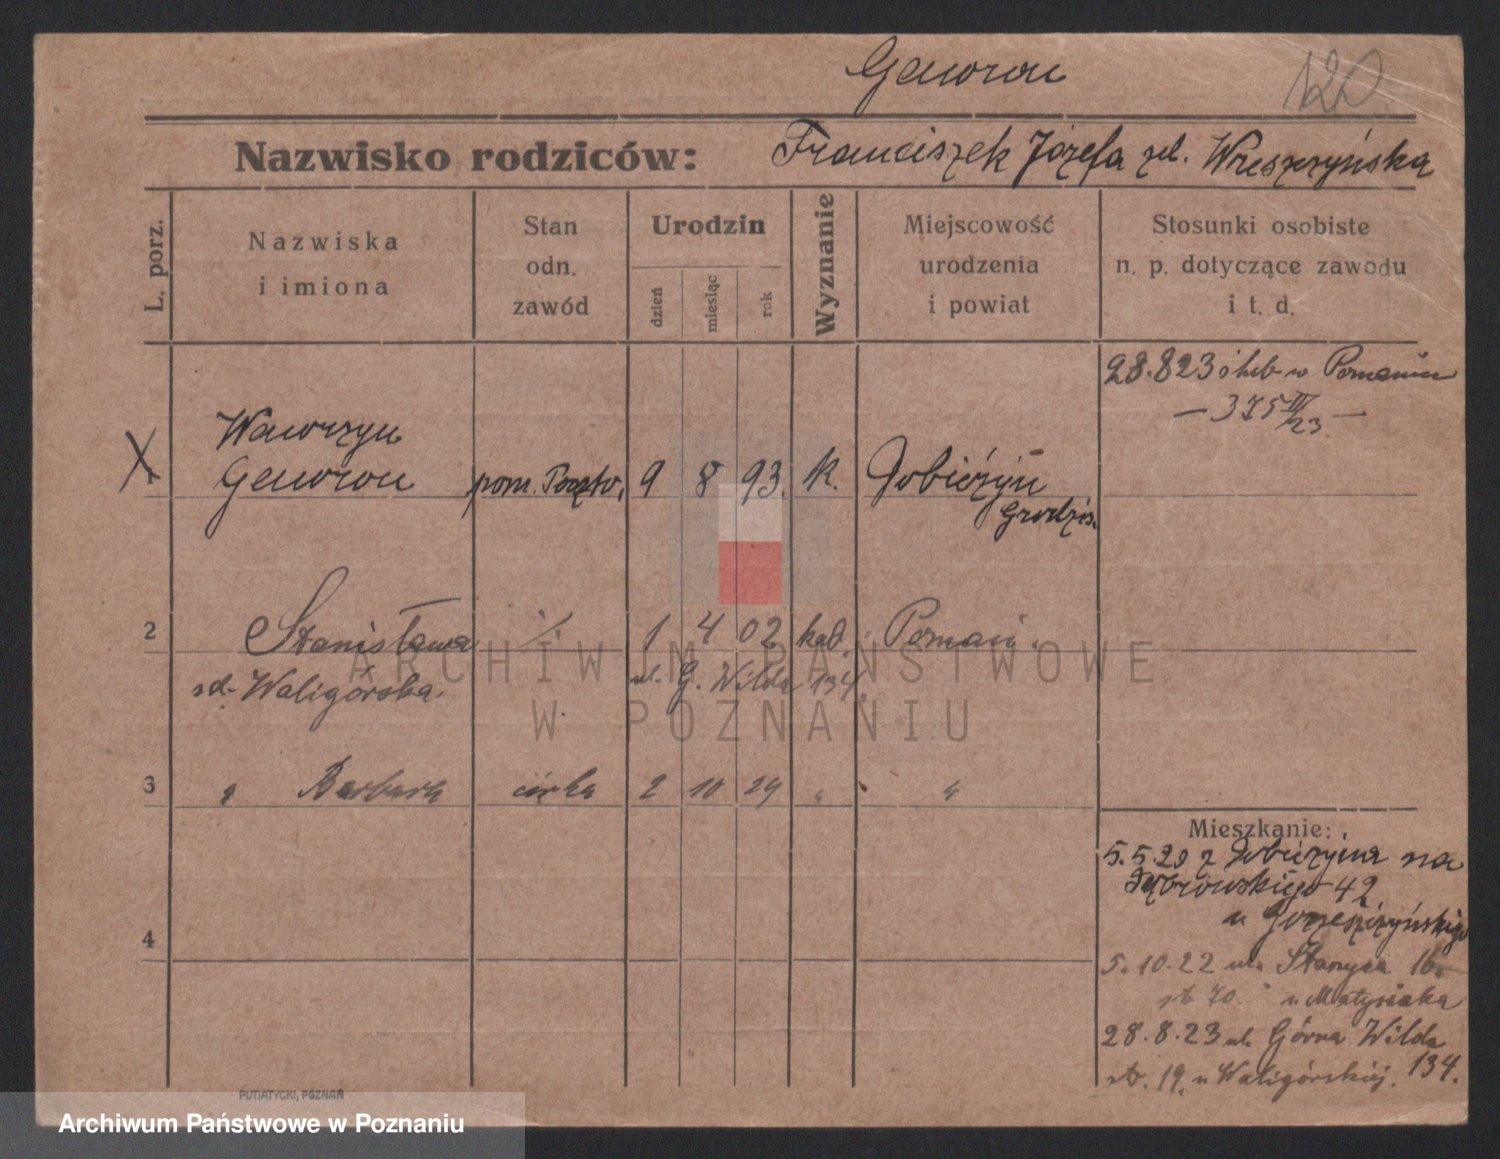 Gawron
120
Nazwisko rodziców: Franciszek Józefa zd. Wreszczyńska
L. porz.
Nazwiska i imiona
Stan odn. zawód
Urodzin
dzień miesiąc rok
Wyznanie
Miejscowość urodzenia i powiat
Stosunki osobiste n. p. dotyczące zawodu i t. d.
28.8 23 ślub w Poznaniu
— 375 III/23 —
X Wawrzyn
Gawron pom. Poczto. 9 8 93. k. Dobieżyn
Grodzis.
2 Stanisława 1 4 02 kat. Poznań.
zd. Waligórska ul. G. Wilda 134
3 " Barbara córka 2 10 24 " "
4
Mieszkanie:
5.5.20 z Dobieżyna na
Dąbrowskiego 42
u
5.10.22 ul. 16
u Matysiaka
28.8.23 ul. Górna Wilda
134.
st. 19. u Waligórskiej.
PUTIATYCKI, POZNAŃ
ARCHIWUM PAŃSTWOWE
W POZNANIU
Archiwum Państwowe w Poznaniu